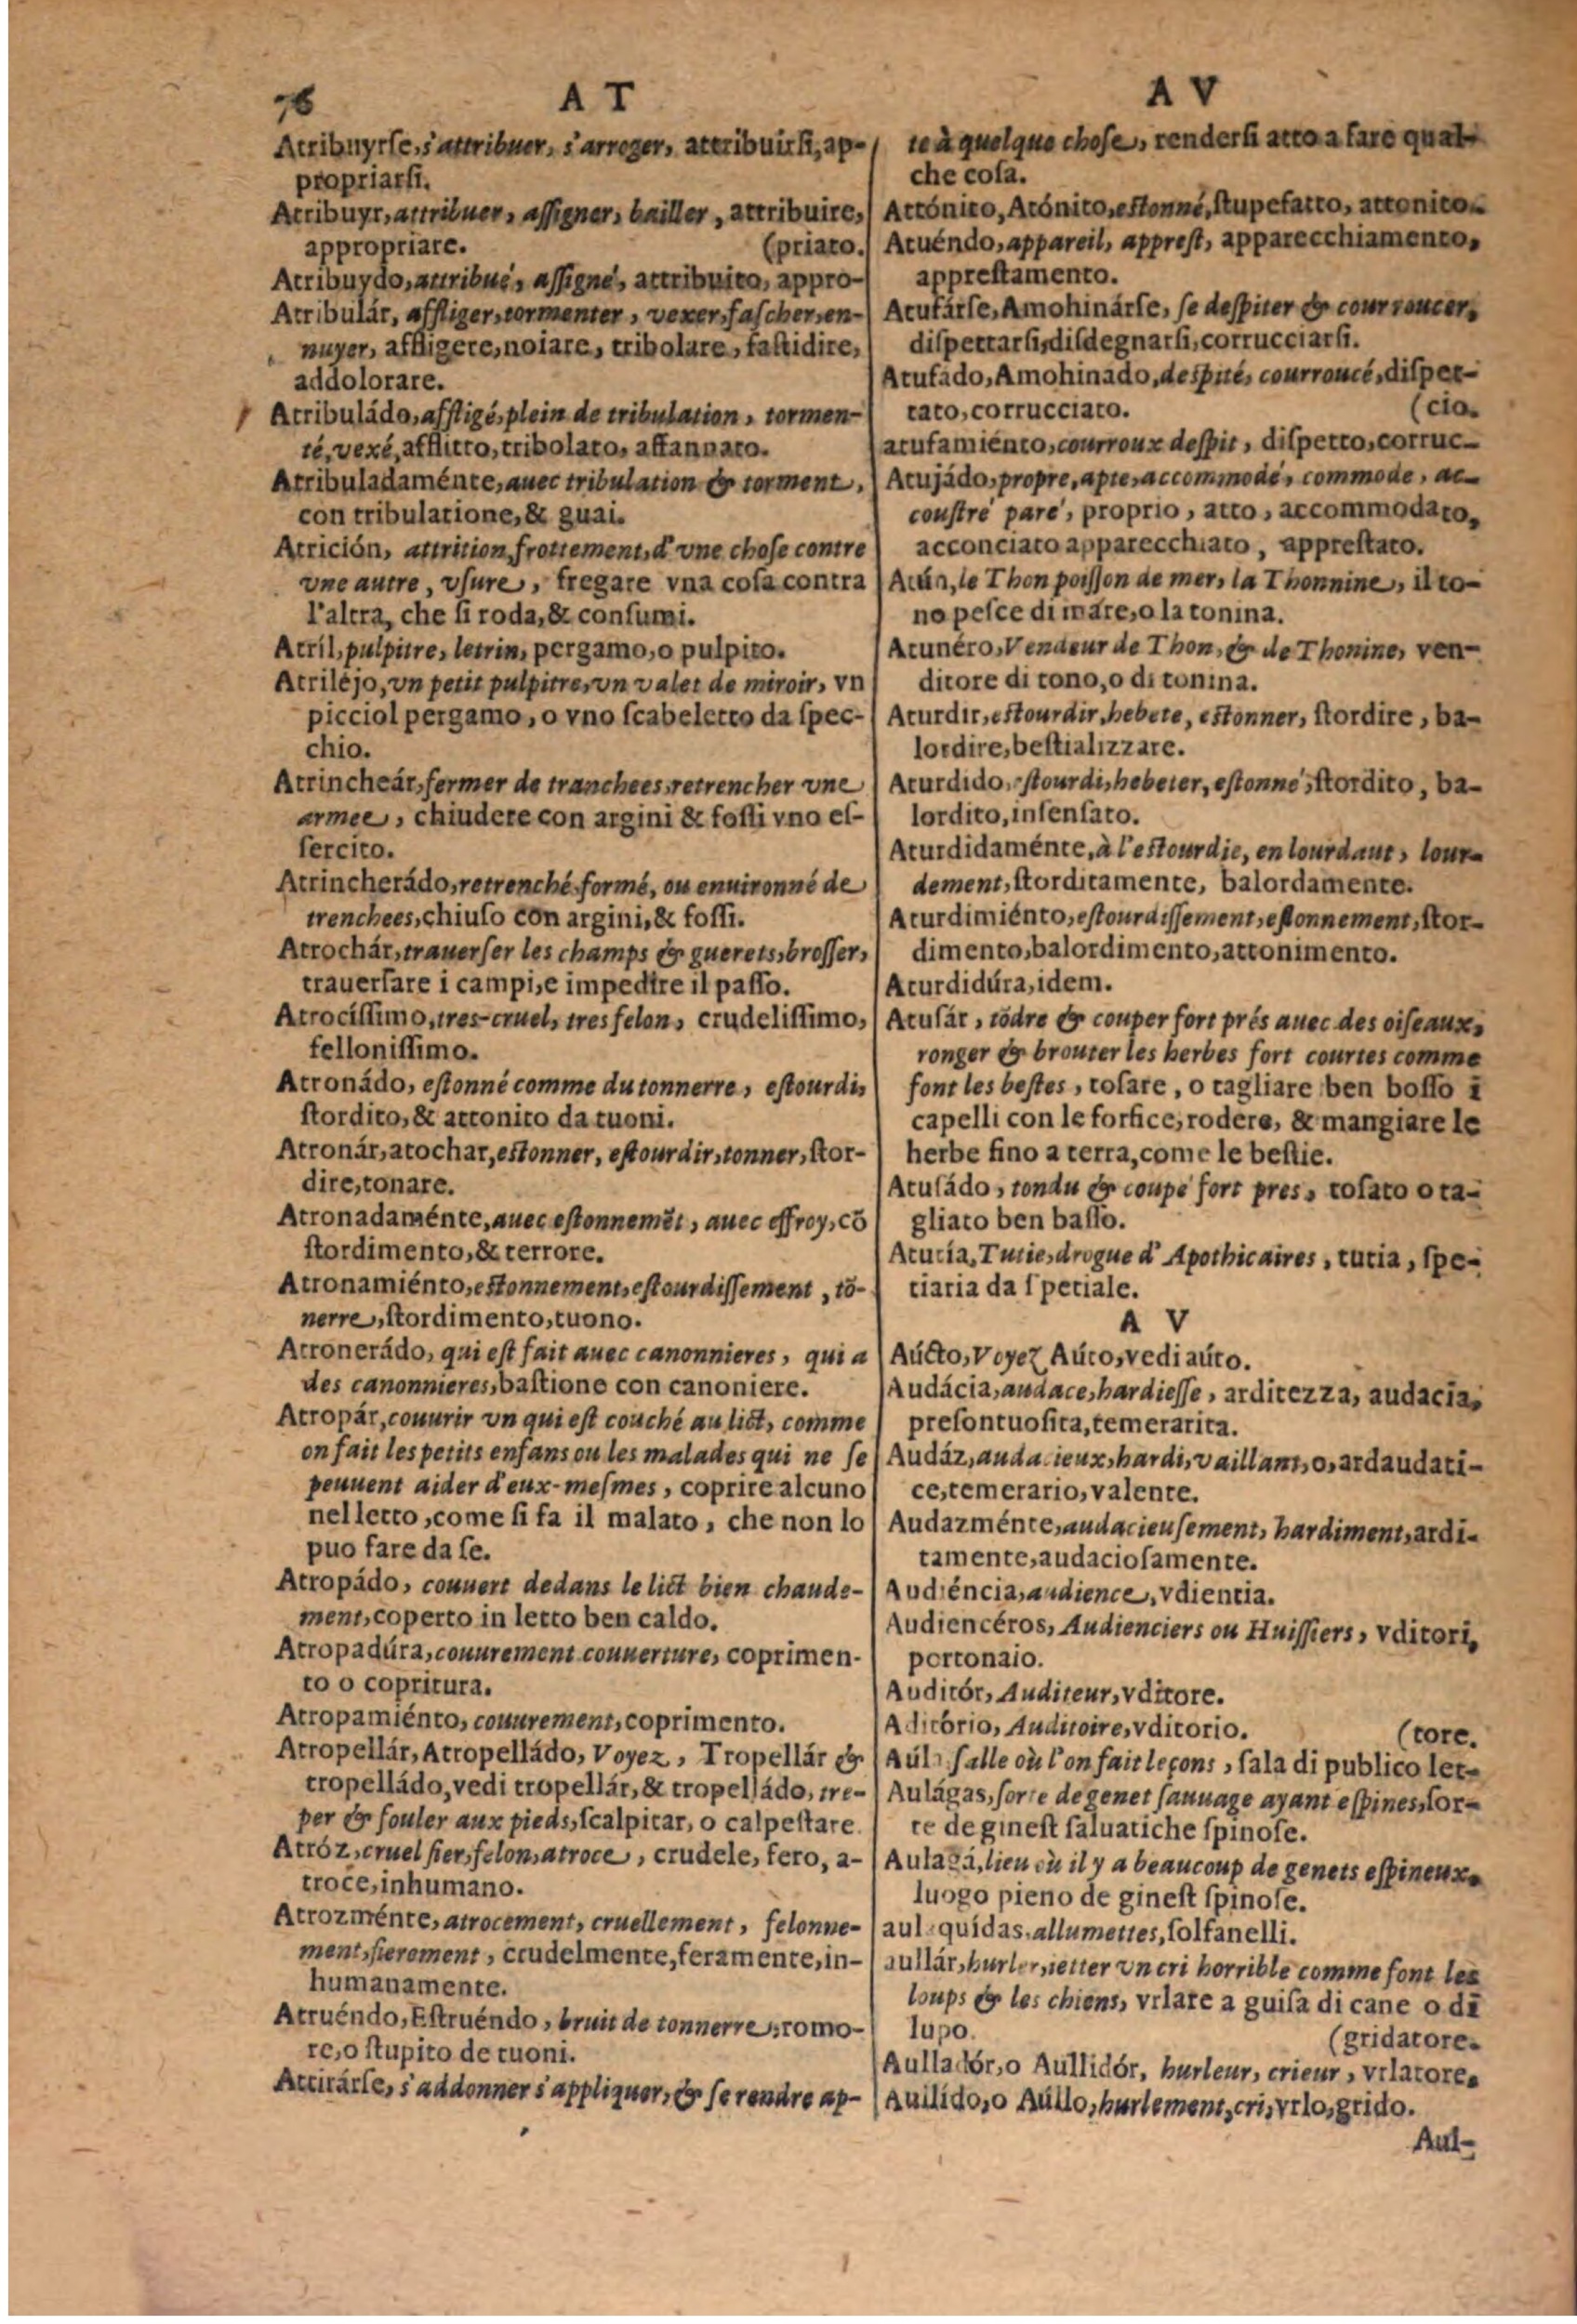 76
A T
Atribuyrſe, s'attribuer, s'arroger, attribuirſi, ap-
propriarſi.
Atribuyr, attribuer, aſſigner, bailler, attribuire,
appropriare. (priato.
Atribuydo, attribué, aſſigné, attribuito, appro-
Atribulár, affliger, tormenter, vexer, faſcher, en-
nuyer, affligere, noiare, tribolare, faſtidire,
addolorare.
Atribuládo, affligé, plein de tribulation, tormen-
té, vexé, afflitto, tribolato, affannato.
Atribuladaménte, auec tribulation & torment,
con tribulatione, & guai.
Atrición, attrition, frottement, d'vne choſe contre
vne autre, vſure, fregare vna coſa contra
l'altra, che ſi roda, & conſumi.
Atríl, pulpitre, letrin, pergamo, o pulpito.
Atriléjo, vn petit pulpitre, vn valet de miroir, vn
picciol pergamo, o vno ſcabeletto da ſpec-
chio.
Atrincheár, fermer de tranchees, retrencher vne
armee, chiudere con argini & foſſi vno eſ-
ſercito.
Atrincherádo, retrenché, formé, ou enuironné de
trenchees, chiuſo con argini, & foſſi.
Atrochár, trauerſer les champs & guerets, broſſer,
trauerſare i campi, e impedire il paſſo.
Atrocíſſimo, tres-cruel, tres felon, crudeliſſimo,
felloniſſimo.
Atronádo, eſtonné comme du tonnerre, eſtourdi,
ſtordito, & attonito da tuoni.
Atronár, atochar, eſtonner, eſtourdir, tonner, ſtor-
dire, tonare.
Atronadaménte, auec eſtonnemẽt, auec effroy, cõ
ſtordimento, & terrore.
Atronamiénto, eſtonnement, eſtourdiſſement, tõ-
nerre, ſtordimento, tuono.
Atronerádo, qui eſt fait auec canonnieres, qui a
des canonnieres, baſtione con canoniere.
Atropár, couurir vn qui eſt couché au lict, comme
on fait les petits enfans ou les malades qui ne ſe
peuuent aider d'eux-meſmes, coprire alcuno
nel letto, come ſi fa il malato, che non lo
puo fare da ſe.
Atropádo, couuert dedans le lict bien chaude-
ment, coperto in letto ben caldo.
Atropadúra, couurement couuerture, coprimen-
to o copritura.
Atropamiénto, couurement, coprimento.
Atropellár, Atropelládo, Voyez, Tropellár &
tropelládo, vedi tropellár, & tropelládo, tre-
per & fouler aux pieds, ſcalpitar, o calpeſtare
Atróz, cruel fier, felon, atroce, crudele, fero, a-
troce, inhumano.
Atrozménte, atrocement, cruellement, felonne-
ment, fierement, crudelmente, feramente, in-
humanamente.
Atruéndo, Eſtruéndo, bruit de tonnerre, romo-
re, o ſtupito de tuoni.
Attirárſe, s'addonner s'appliquer, & ſe rendre ap-
A V
te à quelque choſe, renderſi atto a fare qual-
che coſa.
Attónito, Atónito, eſtonné, ſtupefatto, attonito.
Atuéndo, appareil, appreſt, apparecchiamento,
appreſtamento.
Atufárſe, Amohinárſe, ſe deſpiter & courroucer,
diſpettarſi, diſdegnarſi, corrucciarſi.
Atufado, Amohinado, deſpité, courroucé, diſpet-
tato, corrucciato. (cio.
atufamiénto, courroux deſpit, diſpetto, corruc-
Atujádo, propre, apte, accommodé, commode, ac-
couſtré paré, proprio, atto, accommodato,
acconciato apparecchiato, appreſtato.
Atún, le Thon poiſſon de mer, la Thonnine, il to-
no peſce di mare, o la tonina.
Atunéro, Vendeur de Thon, & de Thonine, ven-
ditore di tono, o di tonina.
Aturdir, eſtourdir, hebete, eſtonner, ſtordire, ba-
lordire, beſtializzare.
Aturdido, eſtourdi, hebeter, eſtonné, ſtordito, ba-
lordito, inſenſato.
Aturdidaménte, à l'eſtourdie, en lourdaut, lour-
dement, ſtorditamente, balordamente.
Aturdimiénto, eſtourdiſſement, eſtonnement, ſtor-
dimento, balordimento, attonimento.
Aturdidúra, idem.
Atuſár, tõdre & couper fort prés auec des oiſeaux,
ronger & brouter les herbes fort courtes comme
font les beſtes, toſare, o tagliare ben boſſo i
capelli con le forfice, rodere, & mangiare le
herbe fino a terra, come le beſtie.
Atuſádo, tondu & coupé fort pres, toſato o ta-
gliato ben baſſo.
Atutía, Tutie, drogue d'Apothicaires, tutia, ſpe-
tiaria da ſpetiale.
A V
Aúcto, Voyez Aúto, vedi aúto.
Audácia, audace, hardieſſe, arditezza, audacia,
preſontuoſita, temerarita.
Audáz, audacieux, hardi, vaillant, o, ardaudati-
ce, temerario, valente.
Audazménte, audacieuſement, hardiment, ardi-
tamente, audacioſamente.
Audiéncia, audience, vdientia.
Audiencéros, Audienciers ou Huiſſiers, vditori,
portonaio.
Auditór, Auditeur, vditore.
Aditório, Auditoire, vditorio. (tore.
Aúla, ſalle où l'on fait leçons, ſala di publico let-
Aulágas, ſorte de genet ſauuage ayant eſpines, ſor-
te de gineſt ſaluatiche ſpinoſe.
Aulagá, lieu où il y a beaucoup de genets eſpineux,
luogo pieno de gineſt ſpinoſe.
aul quídas, allumettes, ſolfanelli.
aullár, hurler, ietter vn cri horrible comme font les
loups & les chiens, vrlare a guiſa di cane o di
lupo. (gridatore.
Aulladór, o Aullidór, hurleur, crieur, vrlatore,
Auilído, o Aúllo, hurlement, cri, vrlo, grido.
Aul-